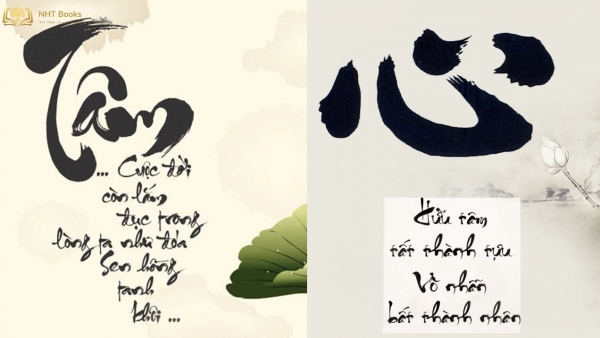 NHT Books
Tâm
... Cuộc đời
còn lắm
đục trong
lòng ta như đóa
Sen hồng
tanh
khôi ...
心
Hữu tâm
tất thành tựu
Vô nhẫn
bất thành nhân